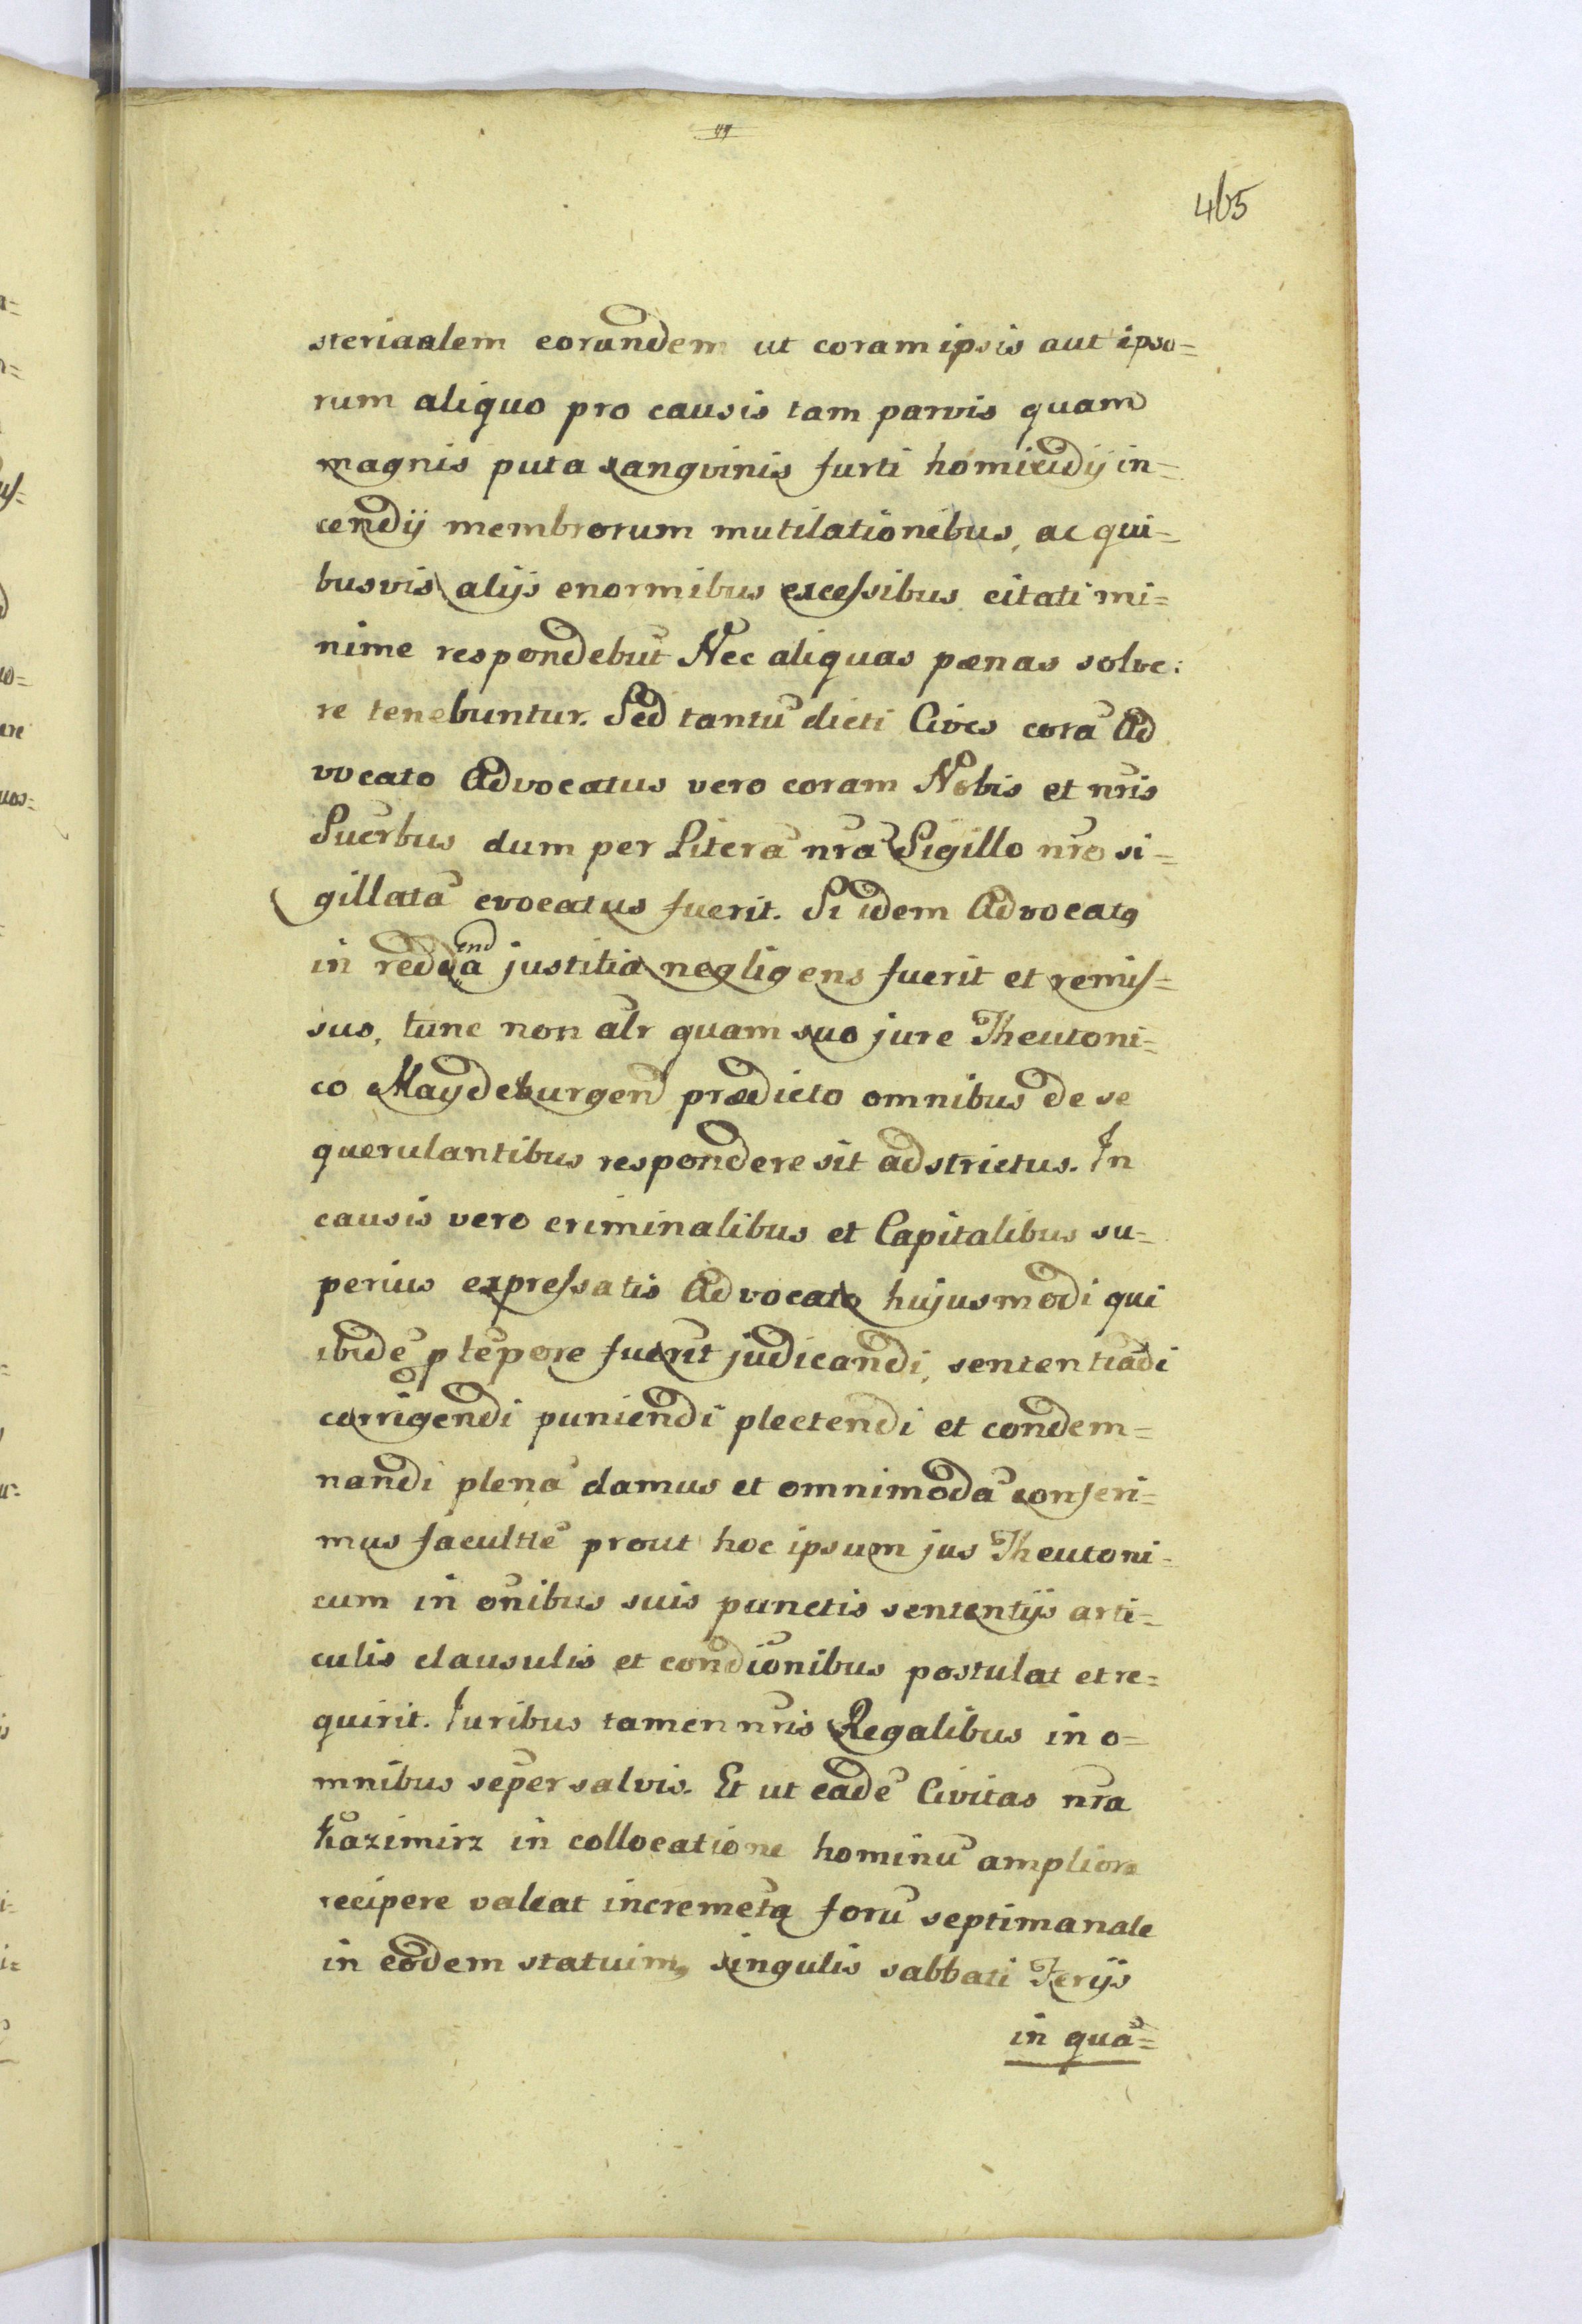 465
steriaalem eorundem ut coram ipsis aut ipso=
rum aliquo pro causis tam parvis quam
magnis puta sangvinis furti homicidij in=
cendij membrorum mutilationibus, ac qui=
busvis alijs enormibus excessibus citati mi=
nime respondebũt Nec aliquas pœnas solve:
re tenebuntur. Sed tantũ dicti Cives corã Ad
vocato Advocatus vero coram Nobis et nr̃is
Sucr̃bus dum per Literã nr̃ã Sigillo nr̃o si=
gillatã evocatus fuerit. Si idem Advocatꝯ
in reddendã justitia negligens fuerit et remis=
sus, tunc non alr̃ quam suo jure Theutoni=
co Maydeburgen̄ prædicto omnibus de se
querulantibus respondere sit adstrictus. In
causis vero criminalibus et Capitalibus su=
perius expressatis Advocato hujusmodi qui
ibidẽ p tẽpore fuerit judicandi, sententiãdi
corrigendi puniendi plectendi et condem=
nandi plenã damus et omnimodã conferi=
mus facultt̃ẽ prout hoc ipsum jus Theutoni=
cum in om̃ibus suis punctis sententijs arti=
culis clausulis et condic̃ionibus postulat et re=
quirit. Iuribus tamen nr̃is Regalibus in o=
mnibus sẽper salvis. Et ut eadẽ Civitas nr̃a
Kazimirz in collocatione hominũ ampliora
recipere valeat incremẽta forũ septimanale
in eodem statuimꝯ singulis sabbati Ferijs
in quã=